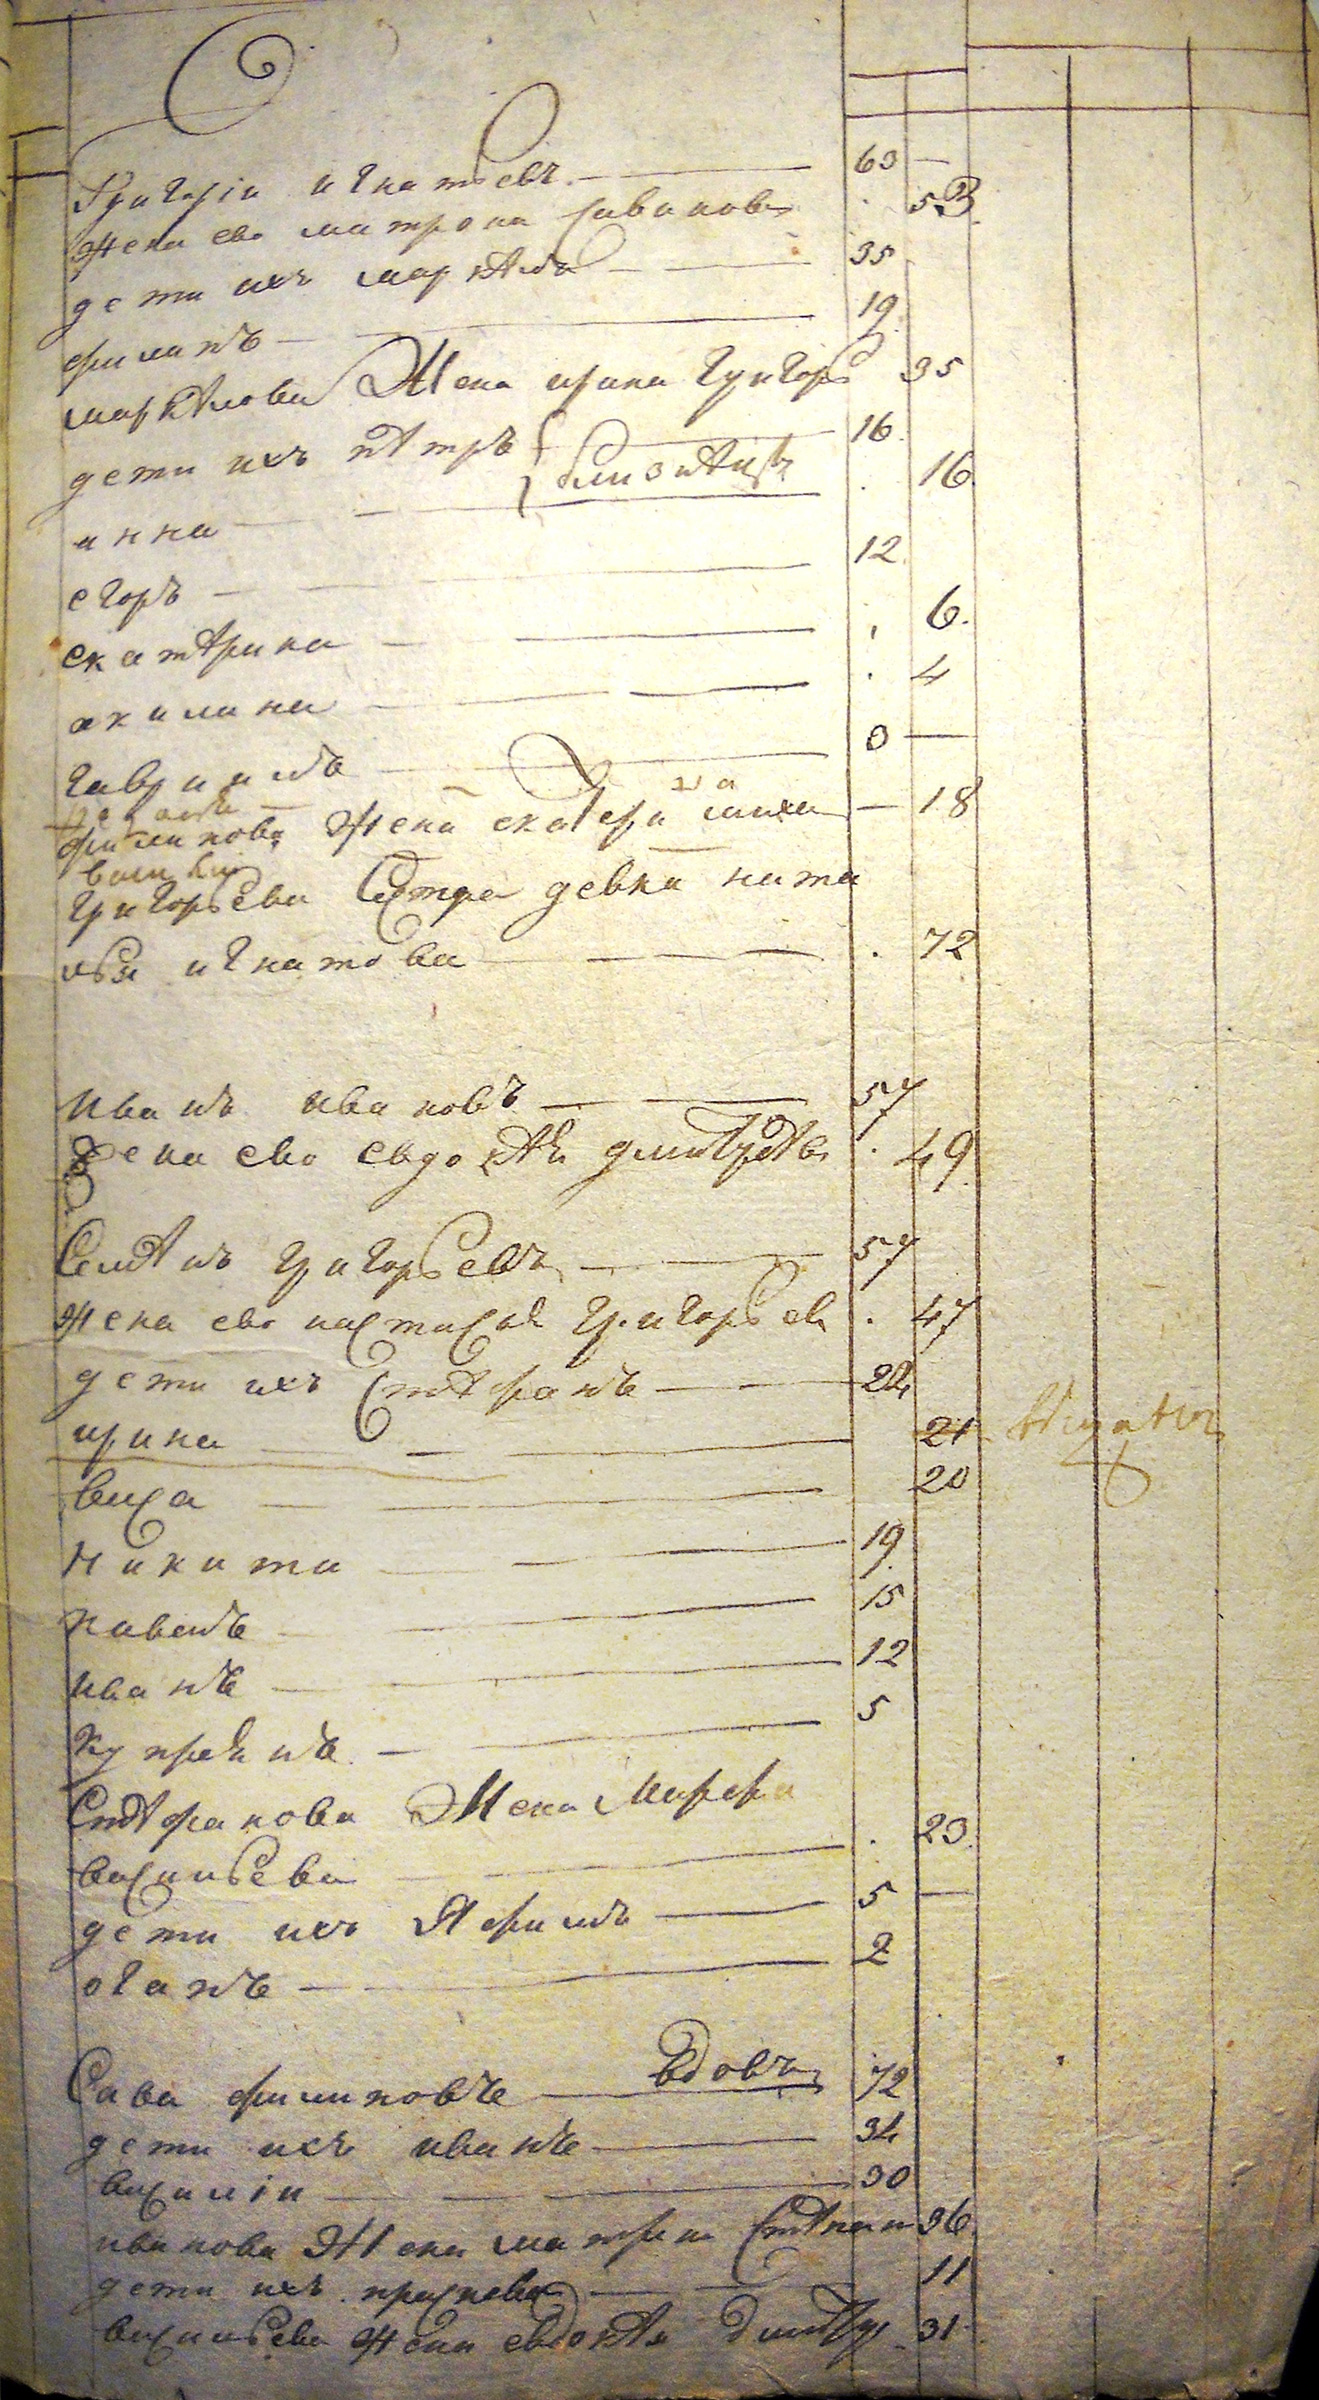 Григорiи игнатьевъ 63
жена ево матрона савинова 53
дети ихъ маркелъ 35
филипъ 19
маркелова Жена ирина григорь 35
дети ихъ петръ 16
близнецы
анна 16
егоръ 12
екатерина 6
акилина 4
гавриилъ 0
филипова жена екатерина миха 18
григорьева Сестра девка ната
лья игнатова 72
иванъ ивановъ 57
Жена ево евдокея дмитрева 49
Семенъ григорьевъ 57
жена ево настасья григорьев 47
дети ихъ Стефанъ 22
ирина 21
васа 20
никита 19
павелъ 15
иванъ 12
купреянъ 5
Стефанова Жена Марфа
васильева 23
дети ихъ Яфимъ 5
2
Сава филиповъ вдовъ 72
дети ихъ иванъ 34
василiи 30
иванова Жена матрена Степан 36
дети ихъ прасковья 11
васильева жена евдокея Дмитр 31